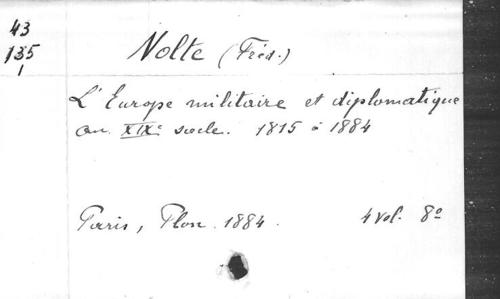 43
135
1
Nolte (Fréd.)
L'Europe militaire et diplomatique
au XIXe siècle. 1815 à 1884
Paris, Plon. 1884. 4 vol. 8º